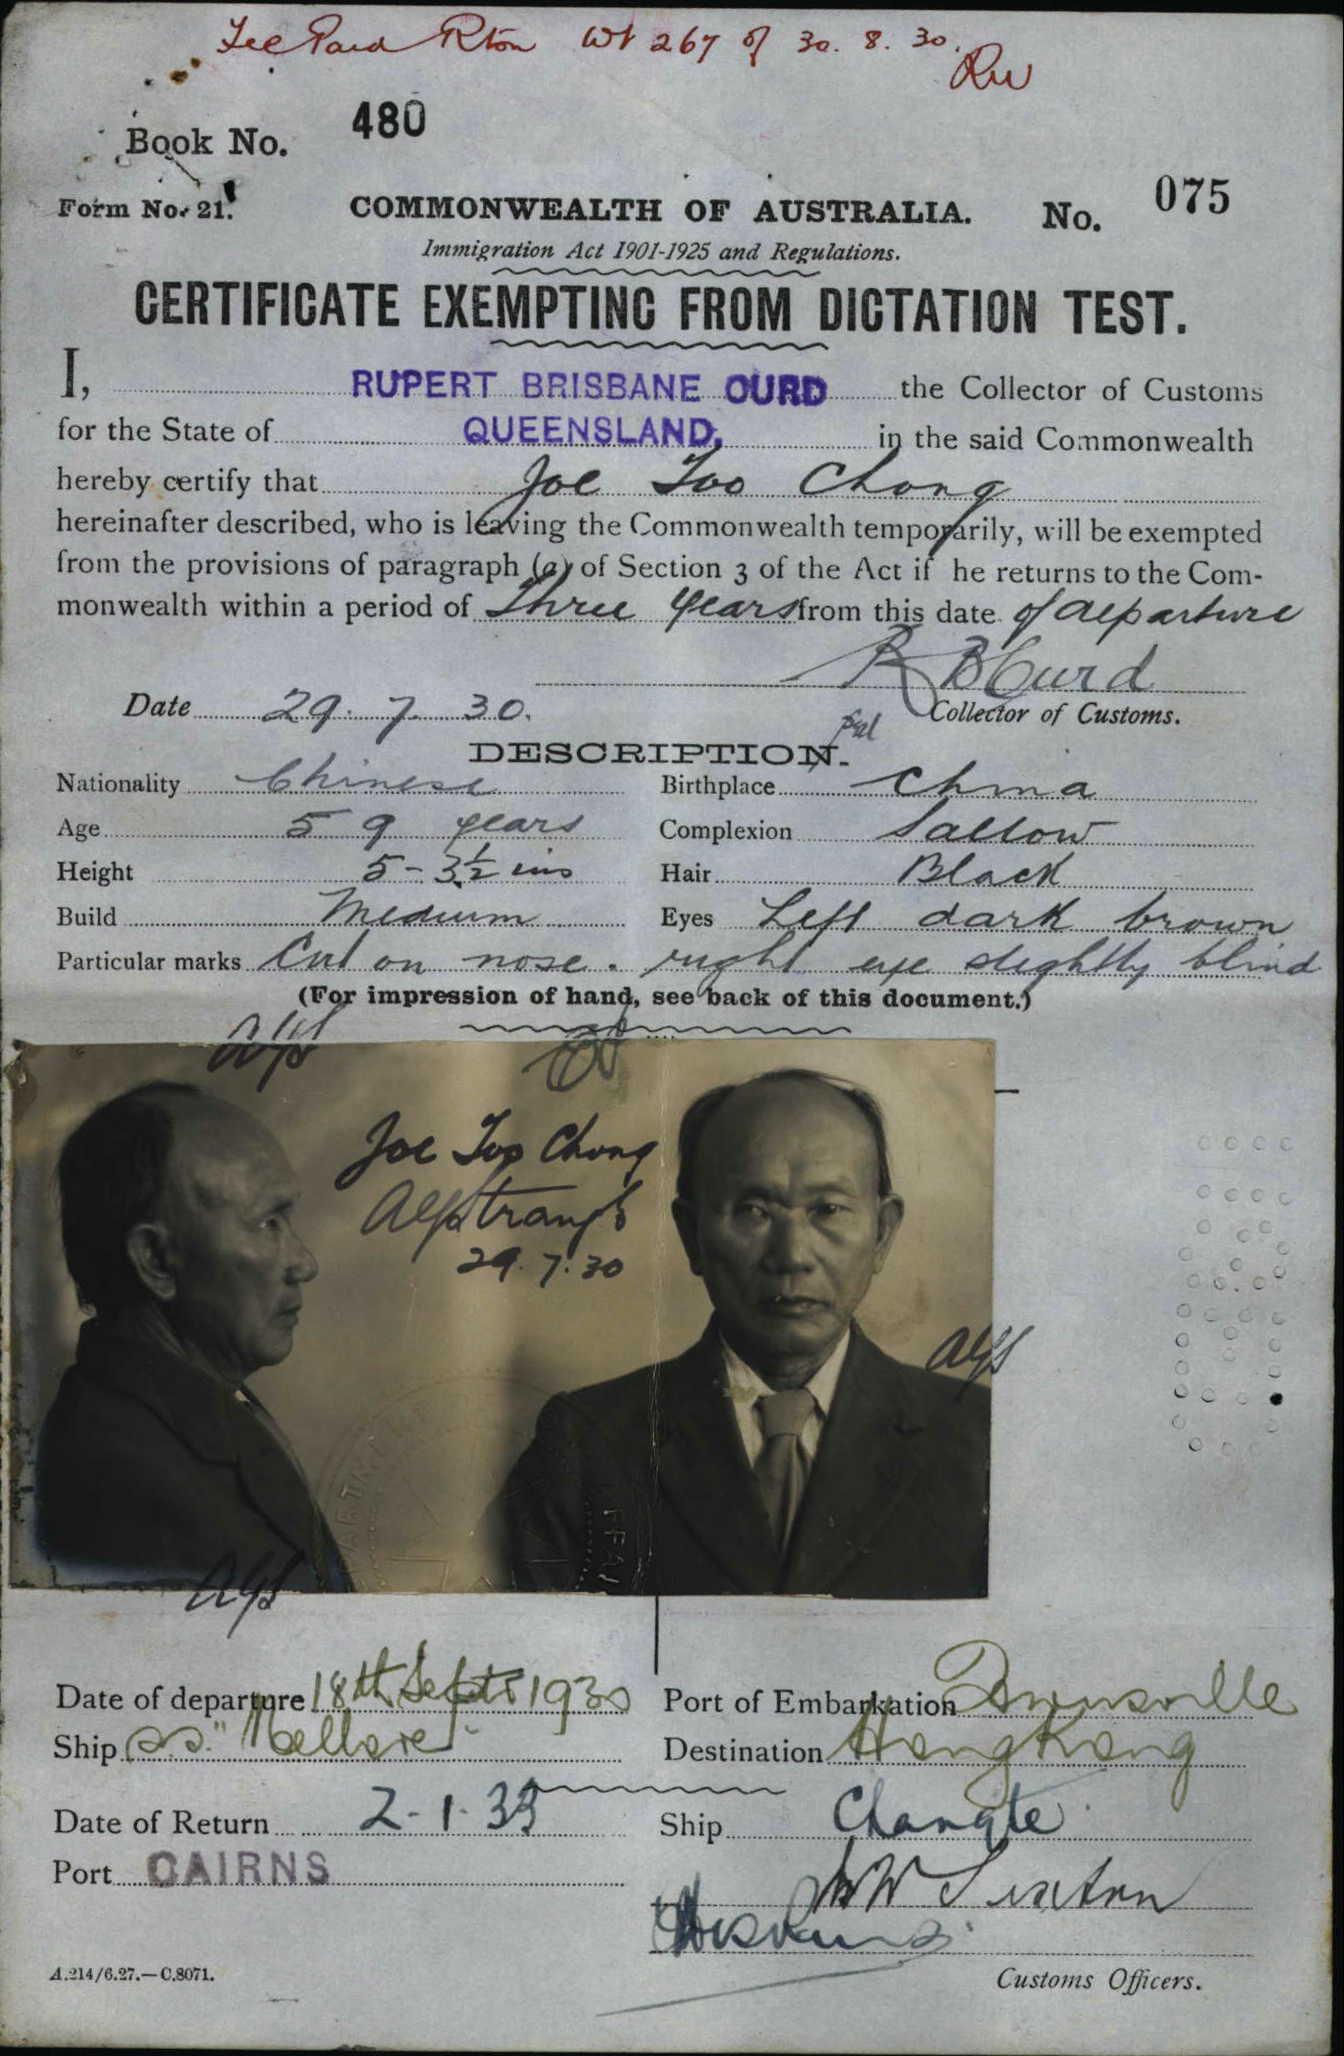 Fee Paid Rton Wt 267 of 30. 8. 30.
Book No. 480
Form No. 21.
COMMONWEALTH OF AUSTRALIA.
No. 075
Immigration Act 1901-1925 and Regulations.
CERTIFICATE EXEMPTING FROM DICTATION TEST.
I, RUPERT BRISBANE CURD the Collector of Customs
for the State of QUEENSLAND. in the said Commonwealth
hereby certify that Joe Too Chong
hereinafter described, who is leaving the Commonwealth temporarily, will be exempted
from the provisions of paragraph (a) of Section 3 of the Act if he returns to the Com-
monwealth within a period of Three years from this date of departure
R B Curd
Date 29. 7. 30.
Collector of Customs.
DESCRIPTION.
Nationality Chinese
Birthplace China
Age 59 years
Complexion Sallow
Height 5 - 3½ ins
Hair Black
Build Medium
Eyes Left dark brown
Particular marks Cut on nose. right eye slightly blind
(For impression of hand, see back of this document.)
AYS
Joe Too Chong
29. 7. 30
AYS
AYS
Date of departure 18th Sept 1930
Port of Embarkation Townsville
Ship s.s. "Nellore"
Destination HongKong
Date of Return 2-1-33
Ship Changte
Port CAIRNS
A.214/6.27.—C.8071.
Customs Officers.